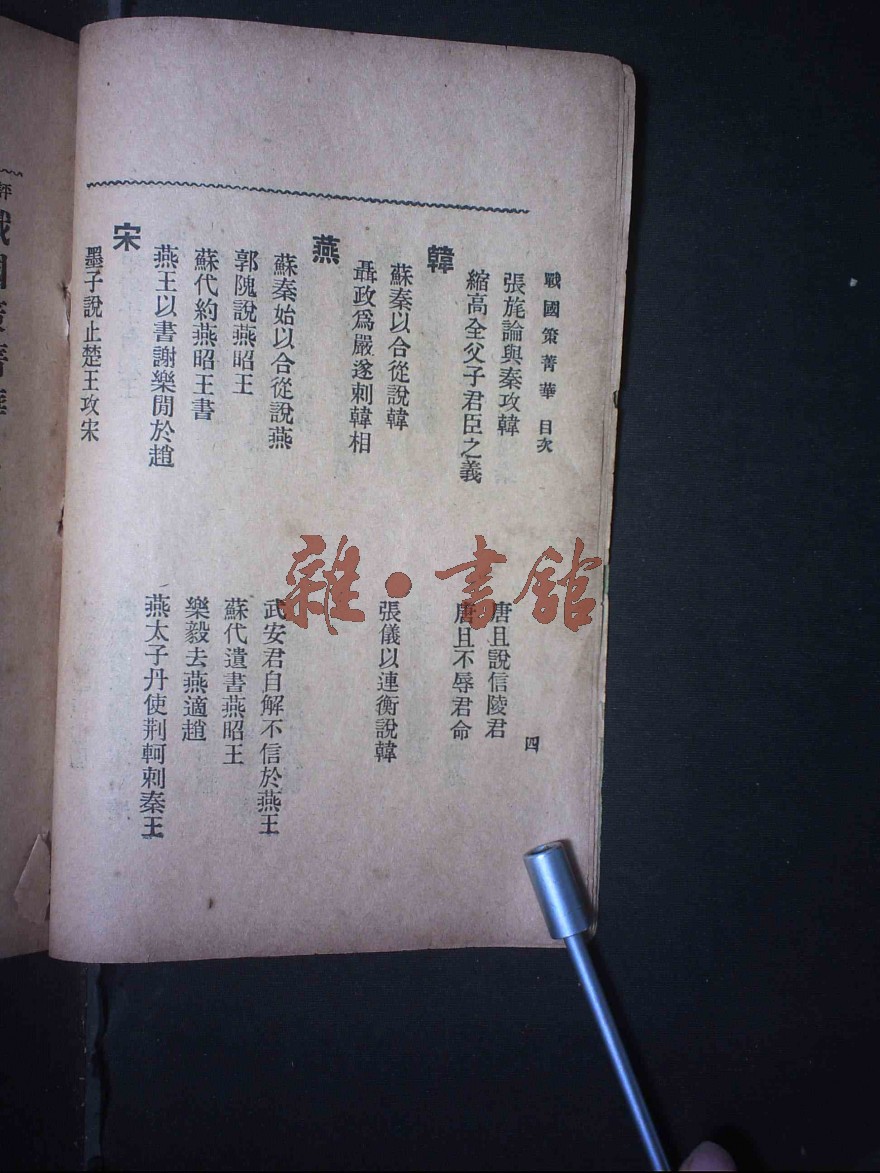 戰國策菁華 目次
四
張旄論與秦攻韓
唐且說信陵君
縮高全父子君臣之義
唐且不辱君命
韓
蘇秦以合從說韓
張儀以連衡說韓
聶政爲嚴遂刺韓相
燕
蘇秦始以合從說燕
武安君自解不信於燕王
郭隗說燕昭王
蘇代遺書燕昭王
蘇代約燕昭王書
樂毅去燕適趙
燕王以書謝樂閒於趙
燕太子丹使荆軻刺秦王
宋
墨子說止楚王攻宋
雜·書舘